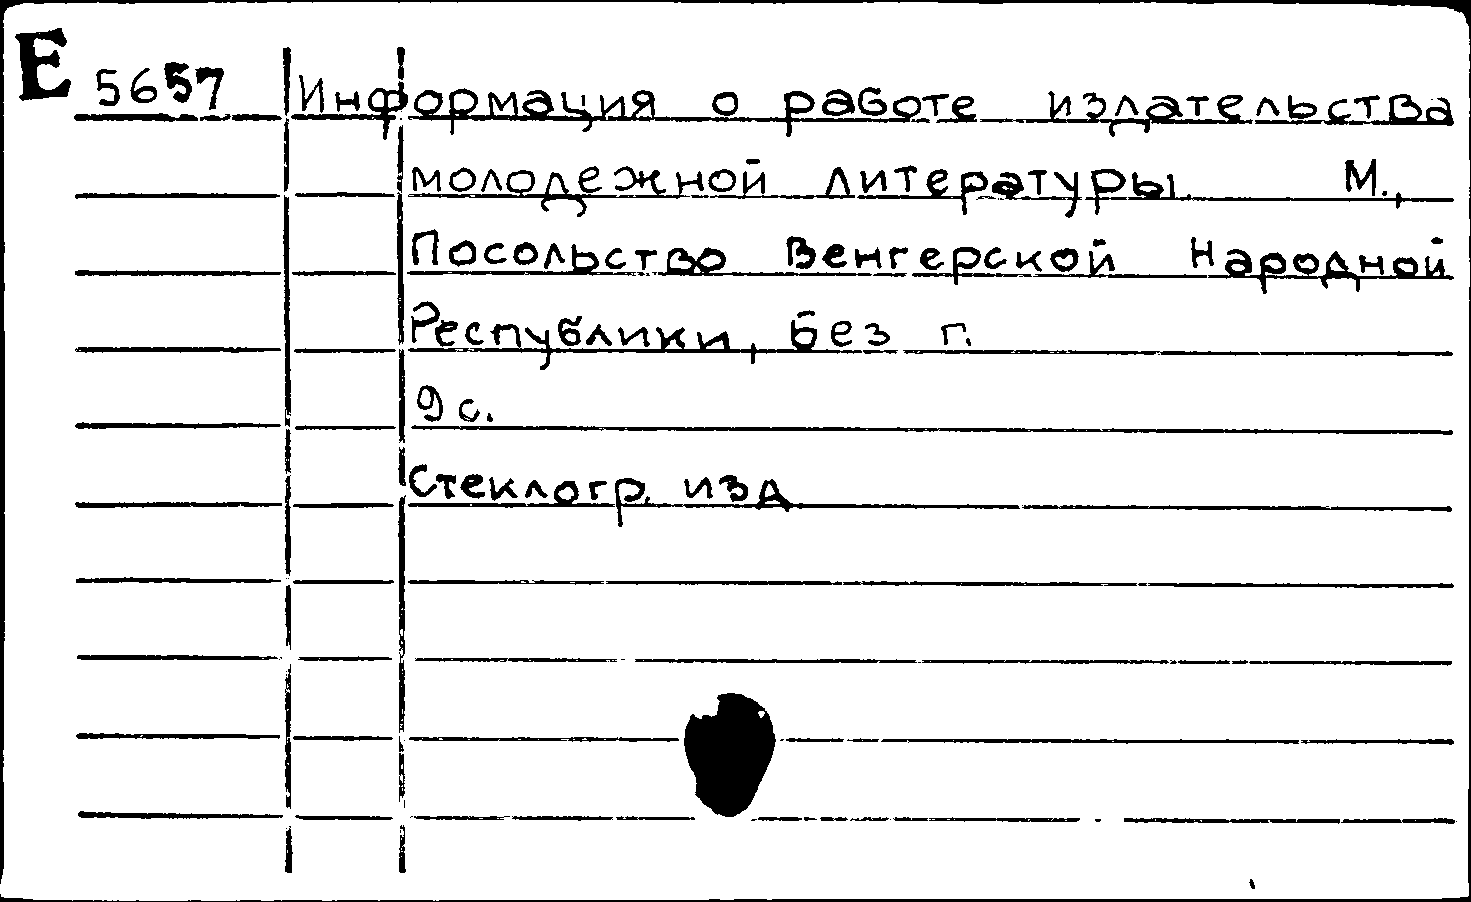 Е 5657 Информация о работе издательства
молодежной литературы. М.,
Посольство Венгерской Народной
Республики, без г.
9 с.
Стеклогр. изд.